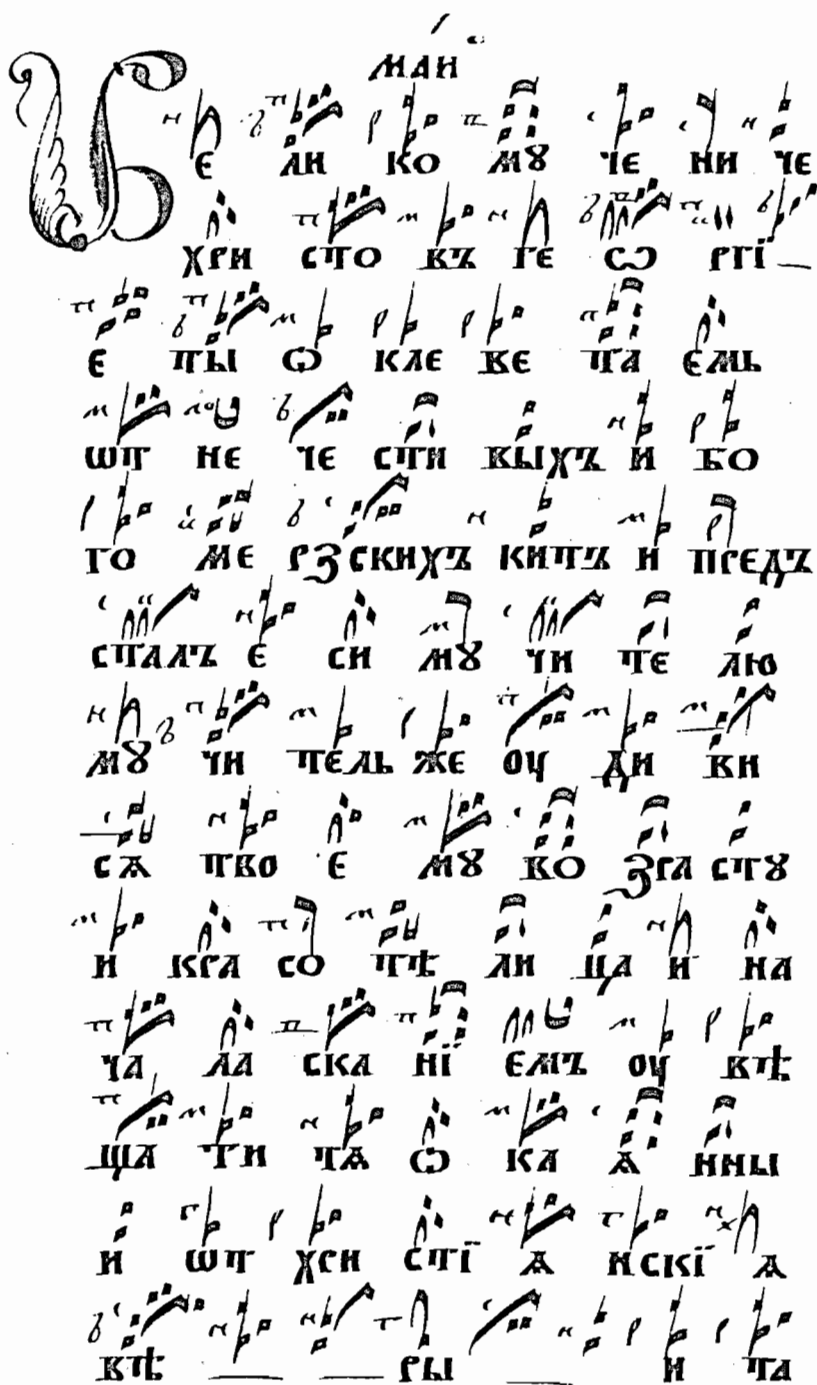 маи
Ве ли ко мꙋ че ни че
хри сто въ ге ѡ ргї
е ты ѡ кле ве та емь
ѿ не че сти выхъ и бо
го ме рзскихъ китъ и предъ
сталъ е си мꙋ чи те лю
мꙋ чи тель же оу ди ви
сѧ тво е мꙋ во зра стꙋ
и кра со тѣ ли ца и на
ча ла ска нї емъ оу вѣ
ща ти тѧ ѡ ка ѧ нны
и ѿ хри стї ѧ нскї ѧ
вѣ ры и та